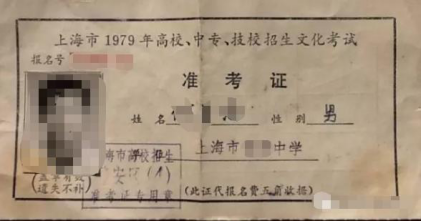 上海市1979年高校、中专、技校招生文化考试
报名号
准考证
姓名 性别 男
上海市 中学
(盖章有效
遗失不补)
海市高校招生
准考证专用章
(此证代报名费五角收据)